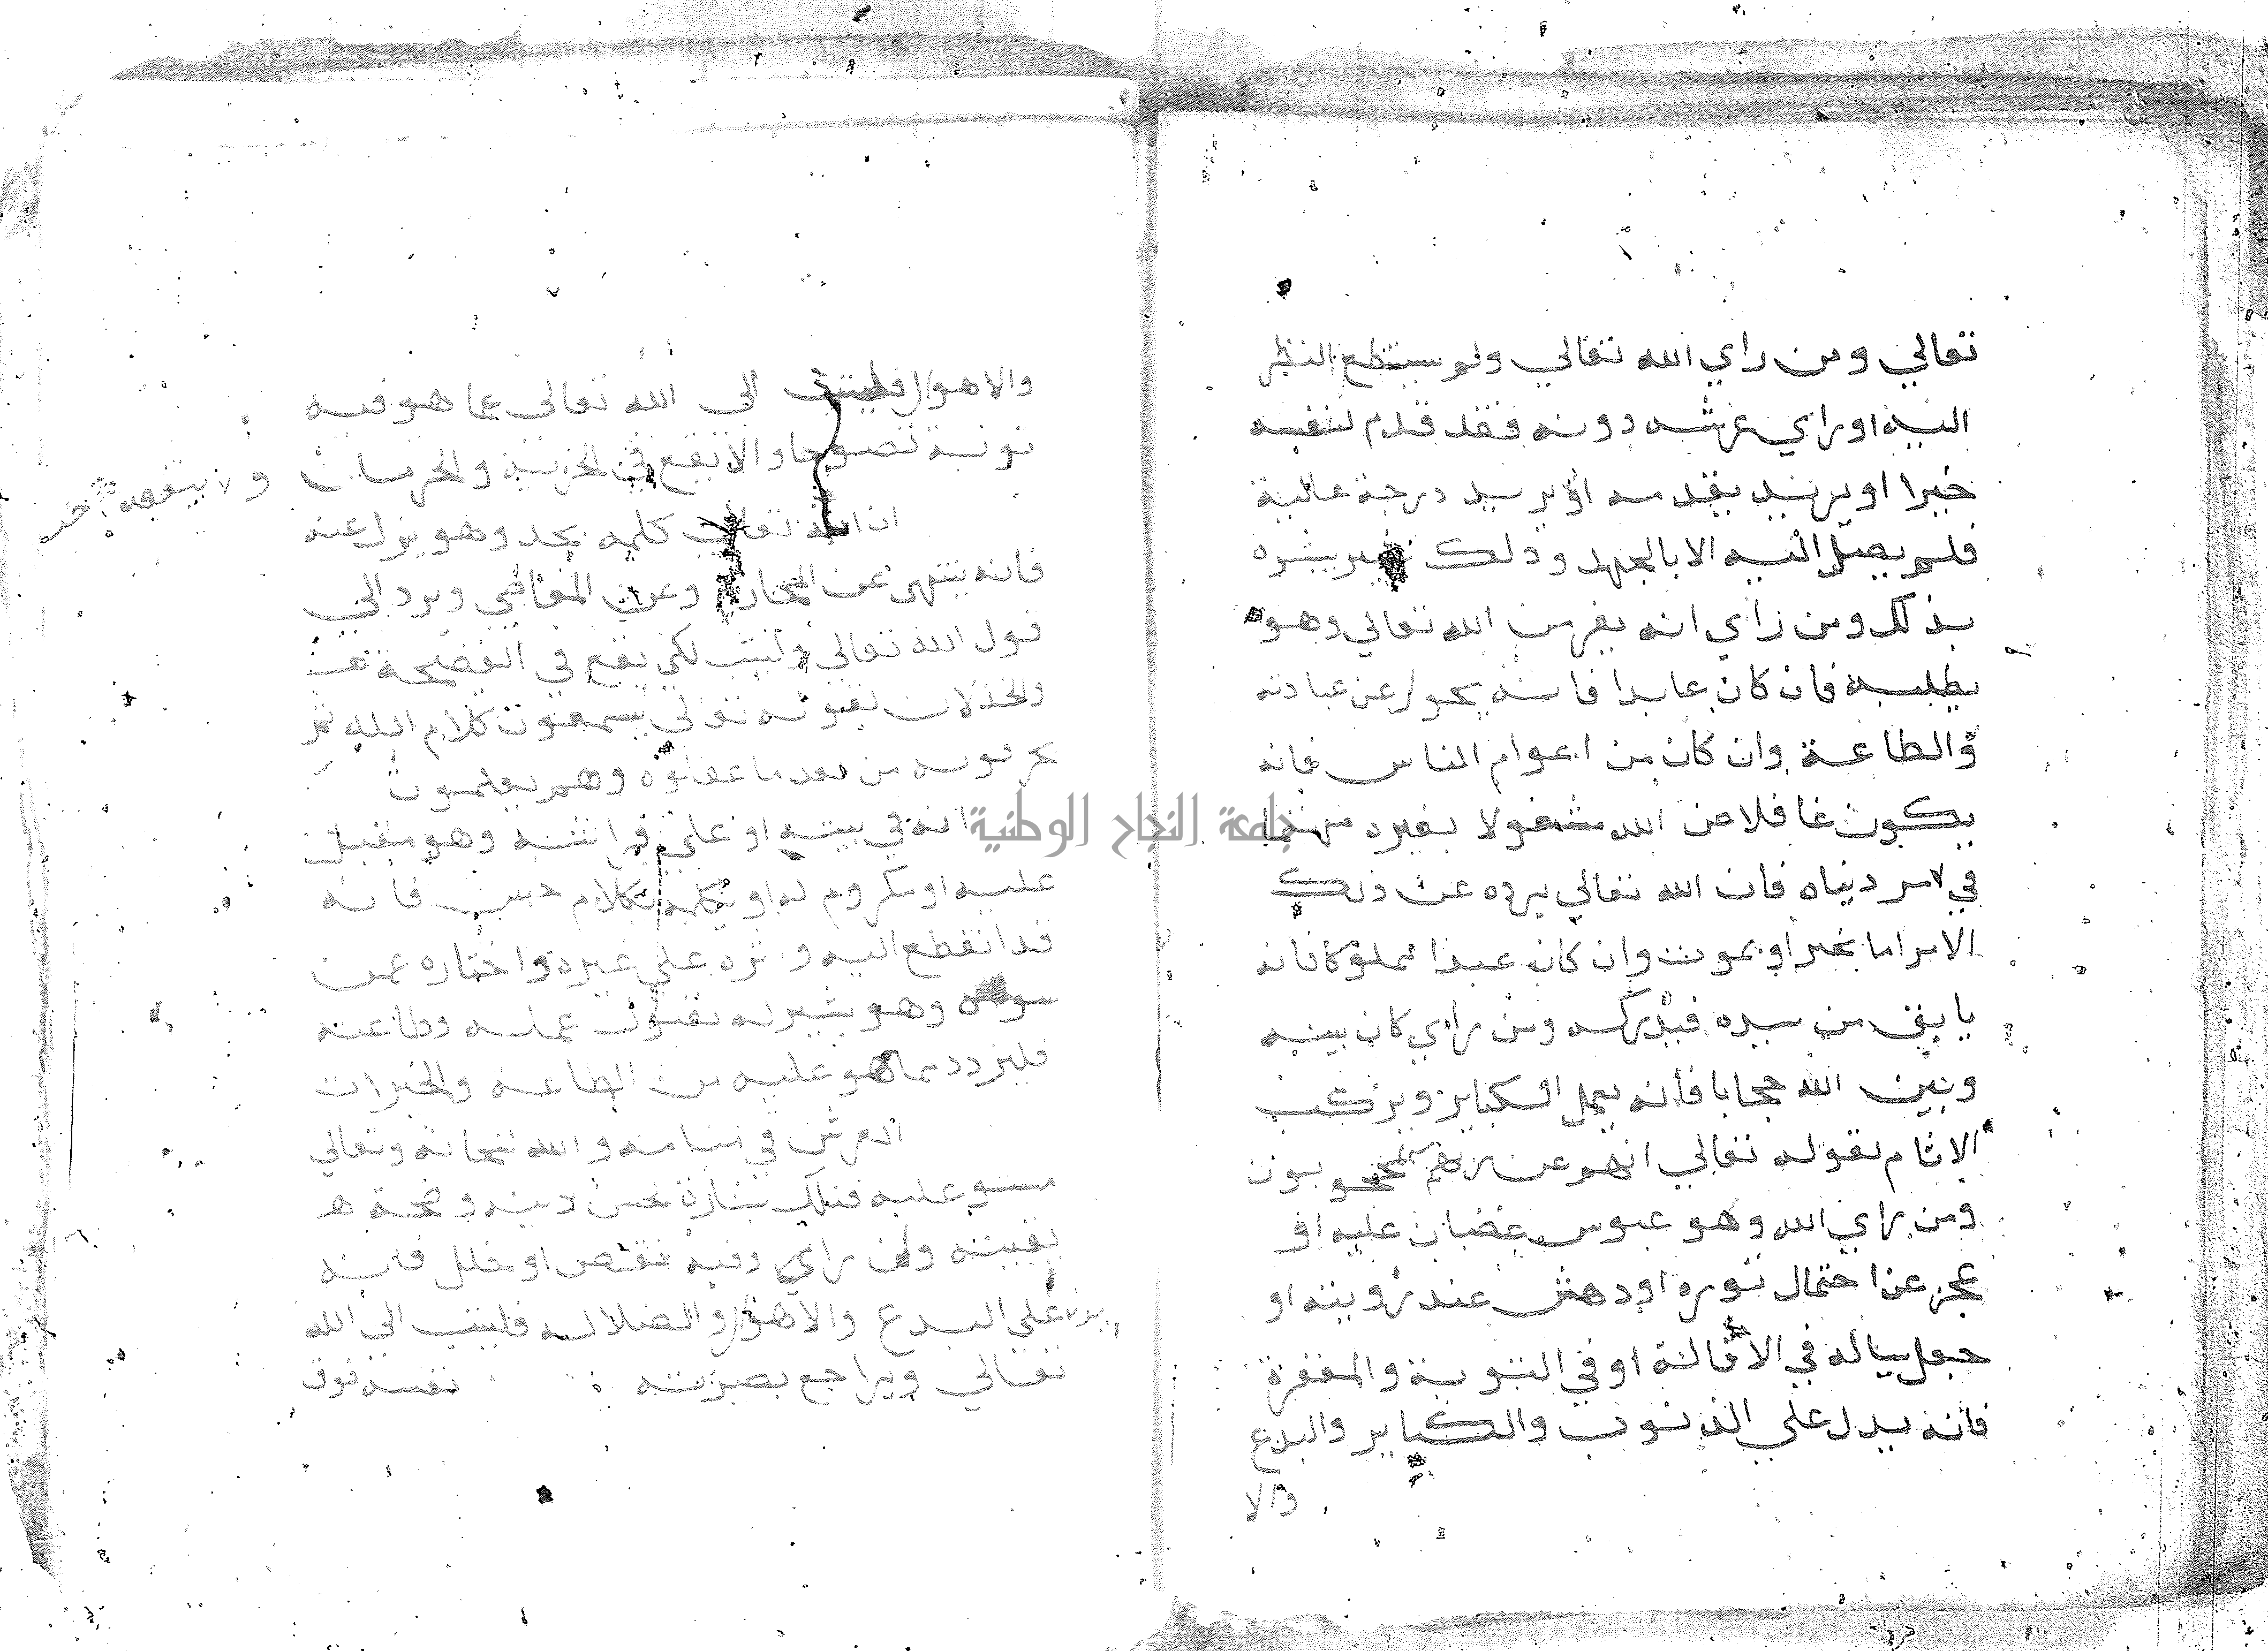 تعالي ومن راي الله تعالي ولم يستطع النظر
اليه او راي عرشه دونه فقد قدم لنفسه
خيرا او يريد بقدمه او يريد درجة عالية
فلم يصل اليه الا بالجهد وذلك بشير يبشره
بذلك ومن راي انه يفر من الله تعالي وهو
يطلبه فان كان عابدا فانه يحول عن عبادته
والطاعة وان كان من اعوام الناس فانه
يكون غافلا عن الله مشغولا بغيره منهمكا
في لامر دنياه فان الله تعالي يرده عن ذلك
الامر اما بخير او بموت وان كان عبدا مملوكا فانه
يابق من سيده فيدركه ومن راي كان بينه
وبين الله حجابا فانه يعمل الكباير ويرتكب
الاثام لقوله تعالي انهم عن ربهم لمحجوبون
ومن راي الله وهو عبوس غضبان عليه او
عجز عن احتمال نوره او دهش عند رؤيته او
جعل يساله في الاقالة او في التوبة والمغفرة
فانه يدل علي الذنوب والكباير والبدع
والا
والاهوال فليتب الي الله تعالى عما هو فيه
توبة نصوحا والا يقع في الحزية والحرمان
ولا ينفعه
ان الله تعالى كلمه بجد وهو يزل عنه
فانه ينتهى عن المحارم وعن المعاصي ويرد الي
قول الله تعالي وانيب لكي يقع في الفضيحة
والخذلان لقوله تعالي يسمعون كلام الله ثم
يحرفونه من بعد ما عقلوه وهم يعلمون
انه في بيته او علي فراشه وهو مقبل
عليه او مكروم له او يكلمه بكلام حسن فانه
قد انقطع اليه و ثره علي غيره واختاره عمن
سواه وهو بشير له بقبول عمله وطاعته
فليزدد مما هو عليه من الطاعه والخيرات
العرش في منامه والله سبحانه وتعالي
مستو عليه فتلك بشارة بحسن دينه وصحة
يقينه ومن راي وفيه نقص او خلل فانه
علي البدع والاهوال والضلاله فليتب الي الله
تعالي ويراجع بصيرته نفسه فوق
جامعة النجاح الوطنية